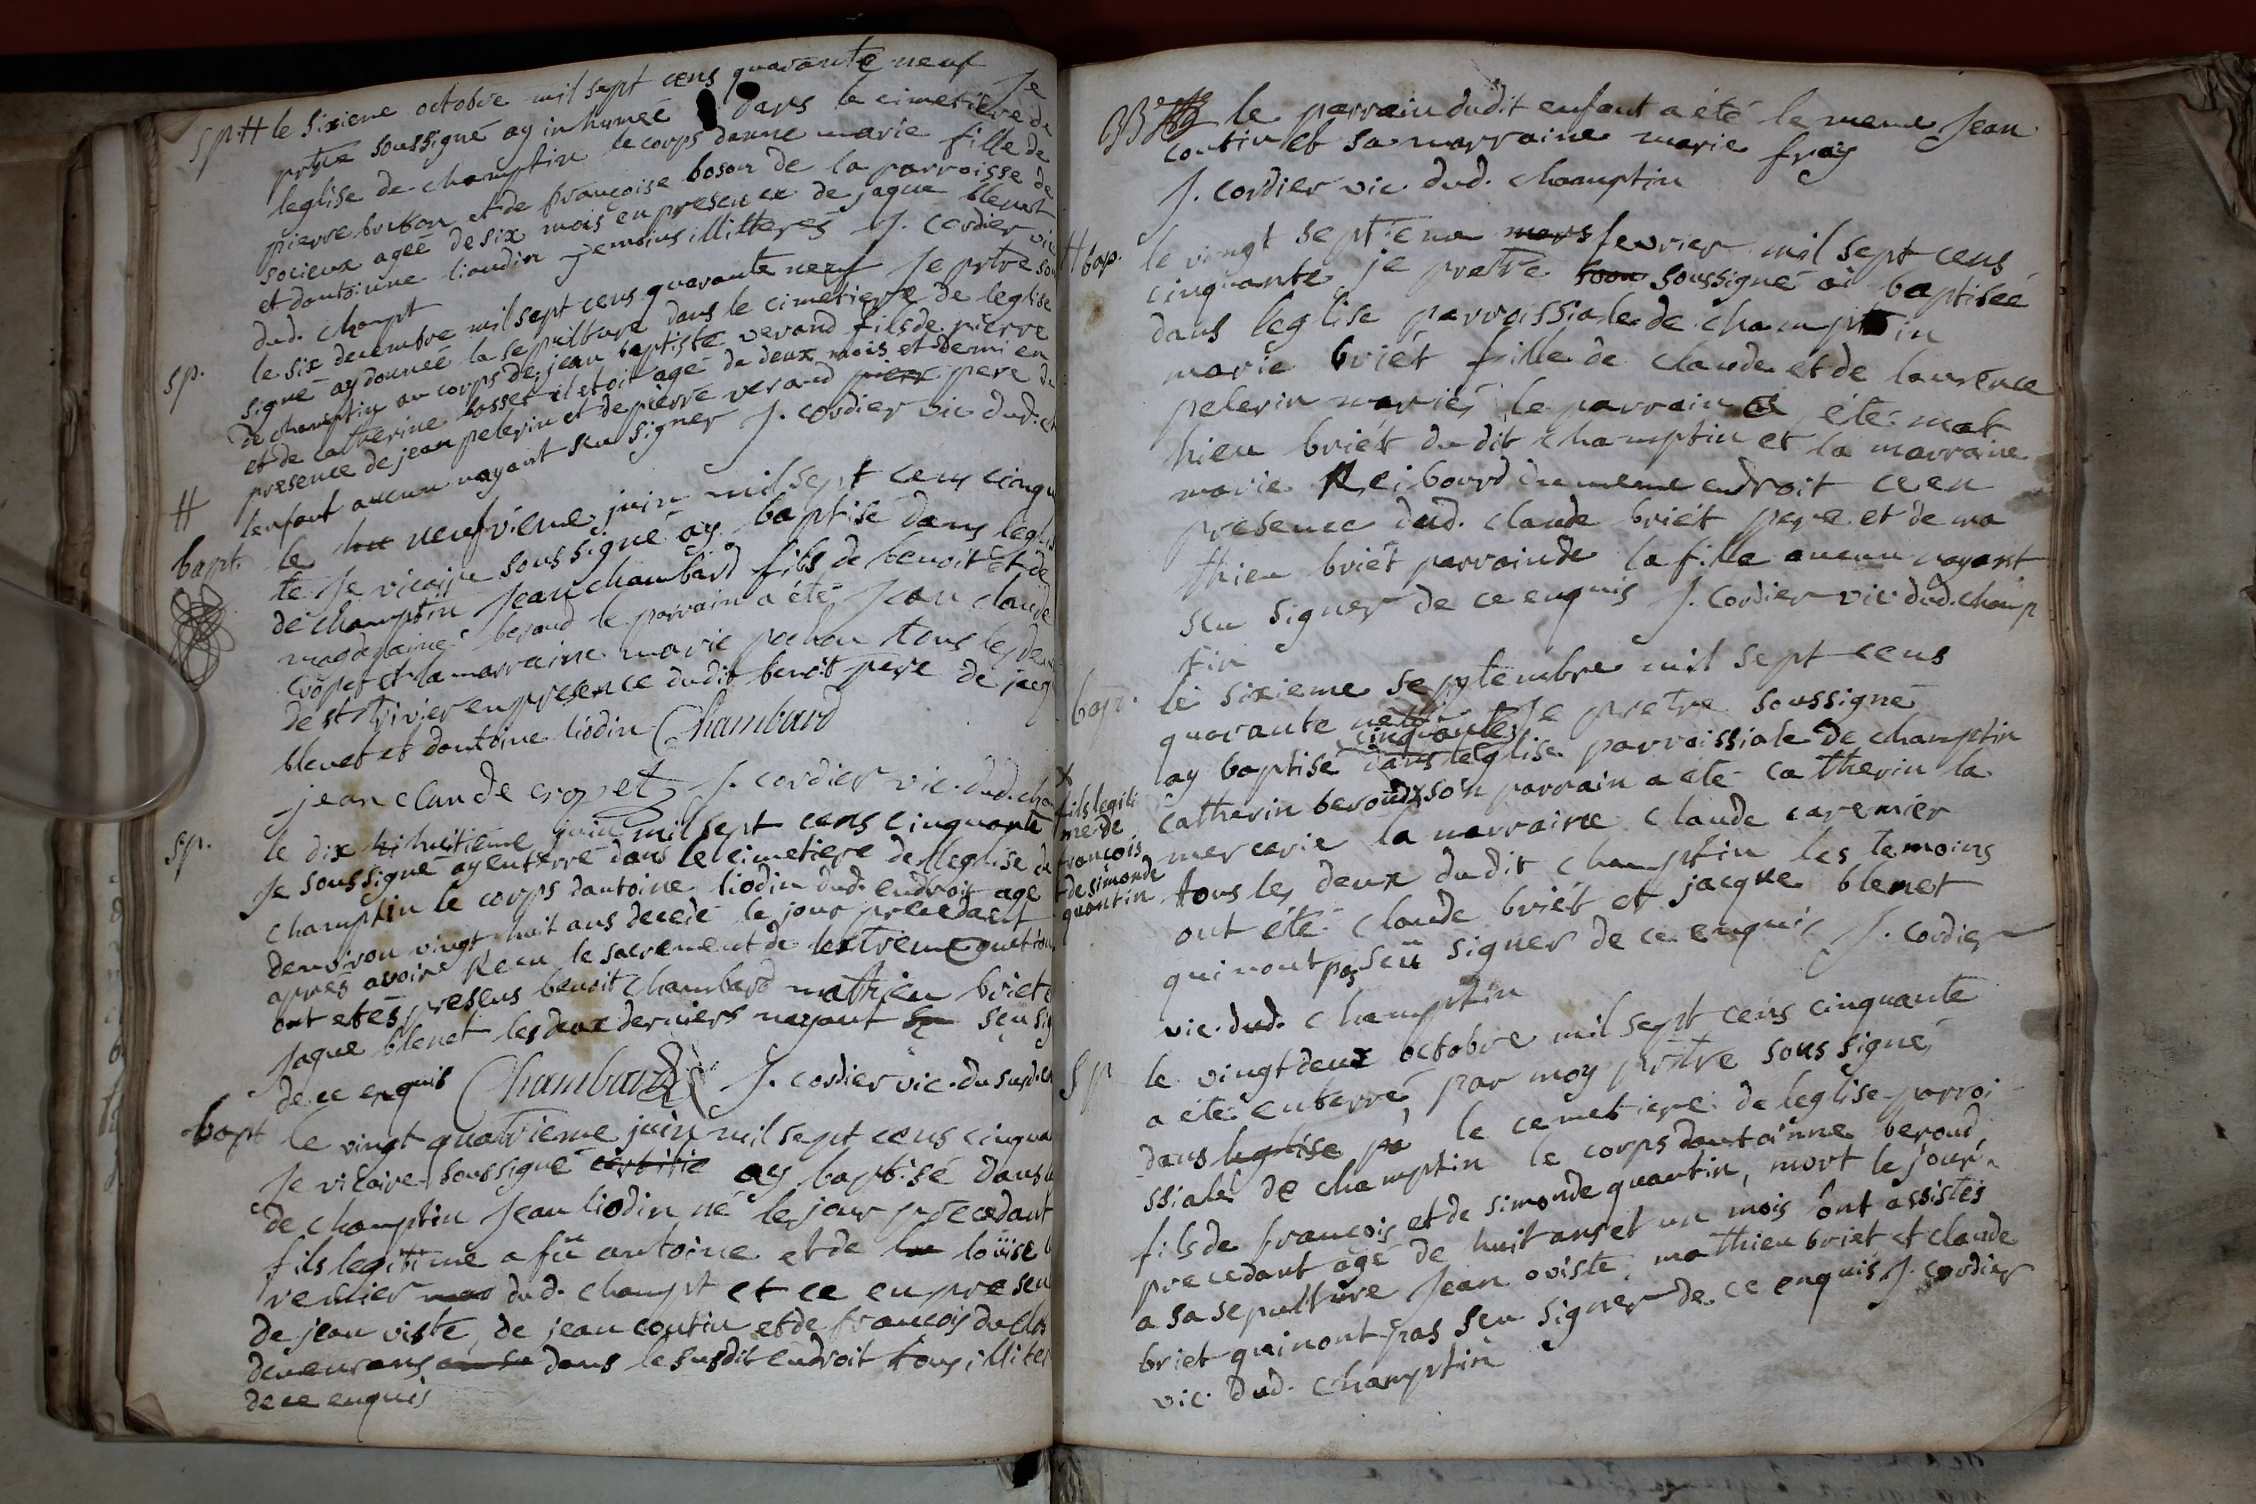 sp. H le sixieme octobre mil sept cens quarante neuf Je
prtre soussigné ay inhumeé dans le cimetiere de
leglise de champtin le corps danne marie fille de
pierre breton et de françoise boson de la parroisse de
socieux ageé de six mois en presence de jaque blenet
et dantoinne liaudin temoins illitterés J. cordier vic
dud. champt
sp. le six decembre mil sept cens quarante neuf Je prtre sou
signé ay donneé la sepulture dans le cimetiere de leglise
de champtin au corps de jean baptiste verand fils de pierre
et de catherine basset il etoit agé de deux mois et demi en
presence de jean pelerin et de pierre verand pierr pere de
lenfant aucun nayant seu signer J. cordier vic dud. ch
H
bapt. le hu neufvieme juin mil sept cens cinqu
te Je vicaire soussigné ay baptisé dans leglis
de champtin Jean chambard fils de benoit et de
magdelaine beraud le parrain a été Jean claude
cropet et la marraine marie pochon tous les deux
de st trivier en presence dudit benoit pere de jacq
blenet et dantoine liodin Chambard
jean claude cropet J. cordier vic. dud. cham
sp. le dix hihuitieme juin mil sept cens cinquante
Je soussigné ay enterré dans le cimetiere de leglise de
champtin le corps dantoine liodin dud. endroit agé
denviron vingt huit ans decedé le jour precedent
aprés avoir Receu le sacrement de lextreme onction
ont etés presens benoit chambard mathieu briet e
jaque blenet les deux derniers nayant su seu sig
de ce enquis Chambard J. cordier vic. du susd. ch
bapt le vingt quatrieme juin mil sept cens cinqua
Je vicaire soussigné certifie ay baptisé dans le
de champtin Jean liodin né le jour precedant
fils legitime a fü antoine et de lou loüise b
verlier mar dud. champt et ce en presen
de jean viste, de jean contin et de francois duclos
demeurans dans le susdit endroit tous illiter
de ce enquis
le parrain dudit enfant a été le meme Jean
contin et sa marraine marie fray
J. cordier vic dud. champtin
H bap. le vingt septieme mars fevrier mil sept cens
cinquante je pretre soou soussigné ai baptiseé
dans leglise parroissiale de champtin
marie briét fille de claude et de laurence
pelerin mariés le parrain a été mat
hieu briét du dit champtin et la marraine
marie Reiboord du meme endroit ce en
presence dud. claude briét pere et de ma
thieu briét parrain de la fille aucun nayant
seu signer de ce enquis J. Cordier vic. dud. champ
tin
bap. le sixieme septembre mil sept cens
quarante neuf cinquante Je pretre soussigné
ay baptisé dans leglise parroissiale de champtin
catherin beroud x son parrain a été catherin la
x fils legiti
me de
francois
et de simonde
quantin
mercerie la marraine claude caremier
tous les deux du dit champtin les temoins
ont été claude briét et jacque blenet
qui nont pas seü signer de ce enquis J. cordier
vic. dud. champtin
Sp le vingt deux octobre mil sept cens cinquante
a été enterré par moy prtre soussigné
dans leglise pa le cemetiere de leglise parroi
ssiale de champtin le corps dantoinne beroud
fils de francois et de simonde quantin, mort le jour
precedant agé de huit ans et un mois ont assistés
a sa sepulture Jean oviste, mathieu briet et claude
briet qui nont pas seu signer de ce enquis J. cordier
vic. dud. champtin